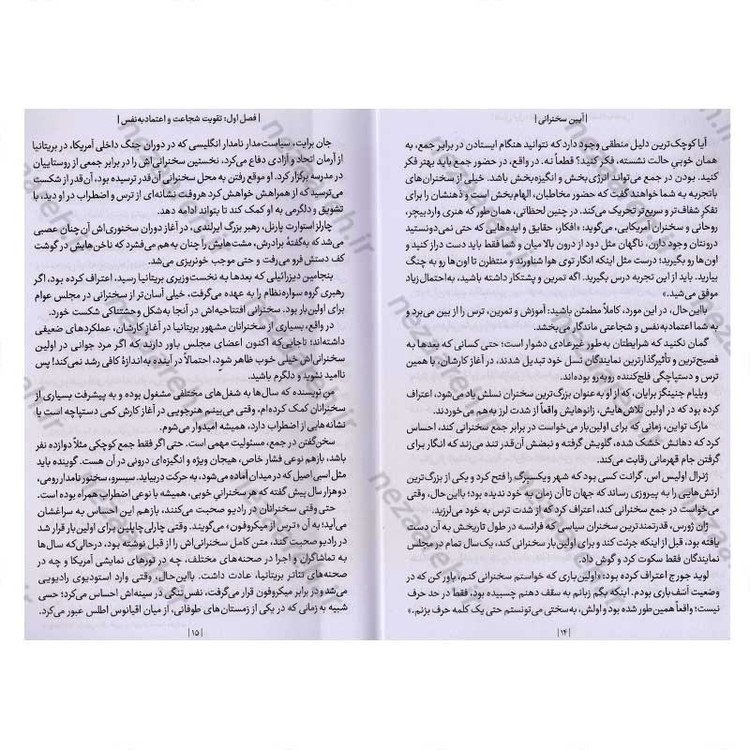 | آیین سخنرانی |
آیا کوچک‌ترین دلیل منطقی وجود دارد که نتوانید هنگام ایستادن در برابر جمع، به
همان خوبیِ حالت نشسته، فکر کنید؟ قطعاً نه. در واقع، در حضور جمع باید بهتر فکر
کنید. بودن در جمع می‌تواند انرژی‌بخش و انگیزه‌بخش باشد. خیلی از سخنران‌های
باتجربه به شما خواهند گفت که حضور مخاطبان، الهام‌بخش است و ذهنشان را برای
تفکرِ شفاف‌تر و سریع‌تر تحریک می‌کند. در چنین لحظاتی، همان‌طور که هنری وارد بیچر،
روحانی و سخنران آمریکایی، می‌گوید: «افکار، حقایق و ایده‌هایی که حتی نمی‌دونستید
درونتان وجود دارن، ناگهان مثل دود از درون بالا میان و شما فقط باید دست دراز کنید و
اون‌ها رو بگیرید؛ درست مثل اینکه انگار توی هوا شناورند و منتظرن تا اون‌ها رو به چنگ
بیارید. باید از این تجربه درس بگیرید. اگه تمرین و پشتکار داشته باشید، به‌احتمال زیاد
موفق می‌شید.»
بااین‌حال، در این مورد، کاملاً مطمئن باشید: آموزش و تمرین، ترس را از بین می‌برد و
به شما اعتمادبه‌نفس و شجاعتی ماندگار می‌بخشد.
گمان نکنید که شرایطتان به‌طور غیرعادی دشوار است؛ حتی کسانی که بعدها به
فصیح‌ترین و تأثیرگذارترین نمایندگان نسل خود تبدیل شدند، در آغاز کارشان، با همین
ترس و دستپاچگی فلج‌کننده روبه‌رو بوده‌اند.
ویلیام جنینگز برایان، که از او به‌عنوان بزرگ‌ترین سخنران نسلش یاد می‌شود، اعتراف
کرده بود که در اولین تلاش‌هایش، زانوهایش واقعاً از شدت لرز به هم می‌خوردند.
مارک تواین، زمانی که برای اولین‌بار می‌خواست در برابر جمعی سخنرانی کند، احساس
کرد که دهانش خشک شده، گلویش گرفته و نبضش آن‌قدر تند می‌زند که انگار برای
گرفتن جام قهرمانی رقابت می‌کند.
ژنرال اولیس اس. گرانت کسی بود که شهر ویکسبرگ را فتح کرد و یکی از بزرگ‌ترین
ارتش‌هایی را به پیروزی رساند که جهان تا آن زمان به خود ندیده بود؛ بااین‌حال، وقتی
می‌خواست در جمعی سخنرانی کند، اعتراف کرد که از شدت ترس به خود می‌لرزید.
ژان ژورس، قدرتمندترین سخنران سیاسی که فرانسه در طول تاریخش به آن دست
یافته بود، قبل از اینکه جرئت کند و برای اولین‌بار سخنرانی کند، یک سال تمام در مجلس
نمایندگان فقط سکوت کرد و گوش داد.
لوید جورج اعتراف کرده بود: «اولین‌باری که خواستم سخنرانی کنم، باور کن که در
وضعیت اَسَف‌باری بودم. اینکه بگم زبانم به سقف دهنم چسبیده بود، فقط در حد حرف
نیست؛ واقعاً همین طور شده بود و اولش، به‌سختی می‌تونستم حتی یک کلمه حرف بزنم.»
| ۱۴ |
| فصل اول: تقویت شجاعت و اعتمادبه‌نفس |
جان برایت، سیاست‌مدار نامدار انگلیسی که در دوران جنگ داخلی آمریکا، در بریتانیا
از آرمان اتحاد و آزادی دفاع می‌کرد، نخستین سخنرانی‌اش را در برابر جمعی از روستاییان
در مدرسه برگزار کرد. او موقع رفتن به محل سخنرانی آن‌قدر ترسیده بود، آن‌قدر از شکست
می‌ترسید که از همراهش خواهش کرد هروقت نشانه‌ای از ترس و اضطراب در او دید، با
تشویق و دلگرمی به او کمک کند تا بتواند ادامه دهد.
چارلز استوارت پارنل، رهبر بزرگ ایرلندی، در آغاز دوران سخنوری‌اش آن‌چنان عصبی
می‌شد که به‌گفتهٔ برادرش، مشت‌هایش را چنان به‌هم می‌فشرد که ناخن‌هایش در گوشت
کف دستش فرو می‌رفت و حتی موجب خونریزی می‌شد.
بنجامین دیزرائیلی که بعدها به نخست‌وزیری بریتانیا رسید، اعتراف کرده بود که اگر
رهبری گروه سواره‌نظام را به عهده می‌گرفت، خیلی آسان‌تر از سخنرانی در مجلس عوام
برای اولین‌بار بود. سخنرانی افتتاحیه‌اش در آنجا به‌شکل وحشتناکی شکست خورد.
در واقع، بسیاری از سخنرانان مشهور بریتانیا در آغاز کارشان، عملکردهای ضعیفی
داشته‌اند؛ تاجایی‌که اکنون اعضای مجلس باور دارند که اگر مرد جوانی در اولین
سخنرانی‌اش خیلی خوب ظاهر شود، احتمالاً در آینده به‌اندازهٔ کافی رشد نمی‌کند! پس
ناامید نشوید و دلگرم باشید.
منِ نویسنده که سال‌ها به شغل‌های مختلفی مشغول بوده و به پیشرفت بسیاری از
سخنرانان کمک کرده‌ام، وقتی می‌بینم هنرجویی در آغاز کارش کمی دستپاچه است یا
نشانه‌هایی از اضطراب دارد، همیشه امیدوار می‌شوم.
سخن‌گفتن در جمع، مسئولیت مهمی است. حتی اگر فقط جمع کوچکی مثلاً دوازده نفر
باشد، بازهم نوعی فشار خاص، هیجان ویژه و انگیزه‌ای درونی در آن هست. گوینده باید
مثل اسبی اصیل که در میدان آماده می‌شود، به حرکت دربیاید. سیسرو، سخنور نامدار رومی،
دوهزار سال پیش گفته که هر سخنرانی خوبی، همیشه با نوعی اضطراب همراه بوده است.
حتی وقتی سخنرانان در رادیو صحبت می‌کنند، بازهم این احساس به سراغشان
می‌آید؛ به آن، «ترس از میکروفون» می‌گویند. وقتی چارلی چاپلین برای اولین بار قرار شد
در رادیو صحبت کند، متن کامل سخنرانی‌اش را از قبل نوشته بود، درحالی‌که سال‌ها
به تماشاگران و اجرا در صحنه‌های مختلف، چه در تورهای نمایشی آمریکا و چه در
صحنه‌های تئاتر بریتانیا، عادت داشت. بااین‌حال، وقتی وارد استودیوی رادیویی
می‌شد و در برابر میکروفون قرار می‌گرفت، نفس‌تنگی در سینه‌اش احساس می‌کرد؛ حسی
شبیه به زمانی که در یکی از زمستان‌های طوفانی، از میان اقیانوس اطلس عبور می‌کرد.
| ۱۵ |
nezaseh.ir